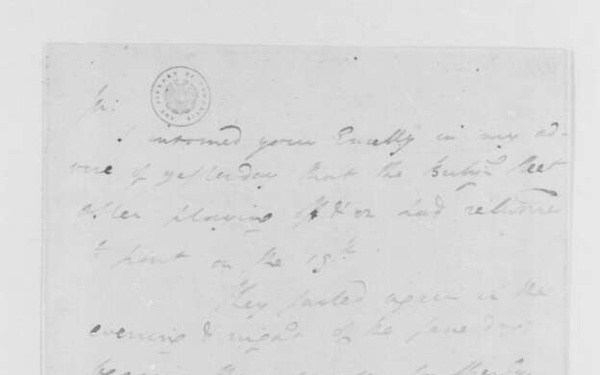 Sir:
I informed your Excelly in my ad-
vice of yesterday that the British fleet
after playing off & on had returned
to port on the 15th
They sailed again in the
evening & night of the same day